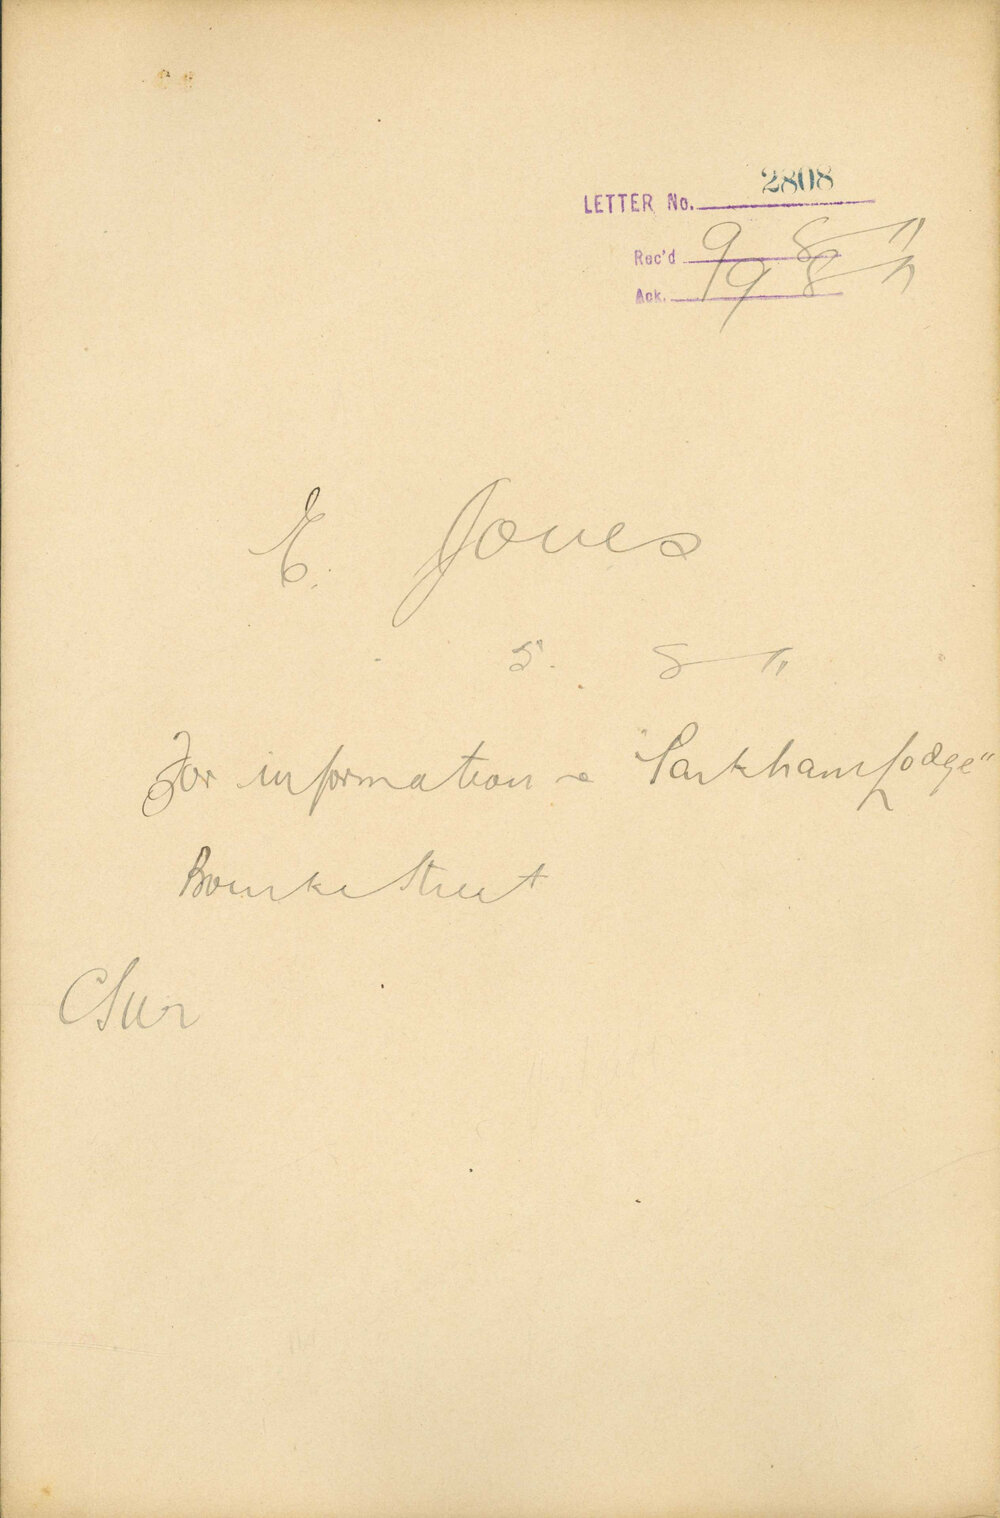 LETTER No. 2808
Rec'd 9 8 11
Ack. 19 8 11
E. Jones
5. 8 11
For information re "Parkham Lodge"
Bourke Street
CSur